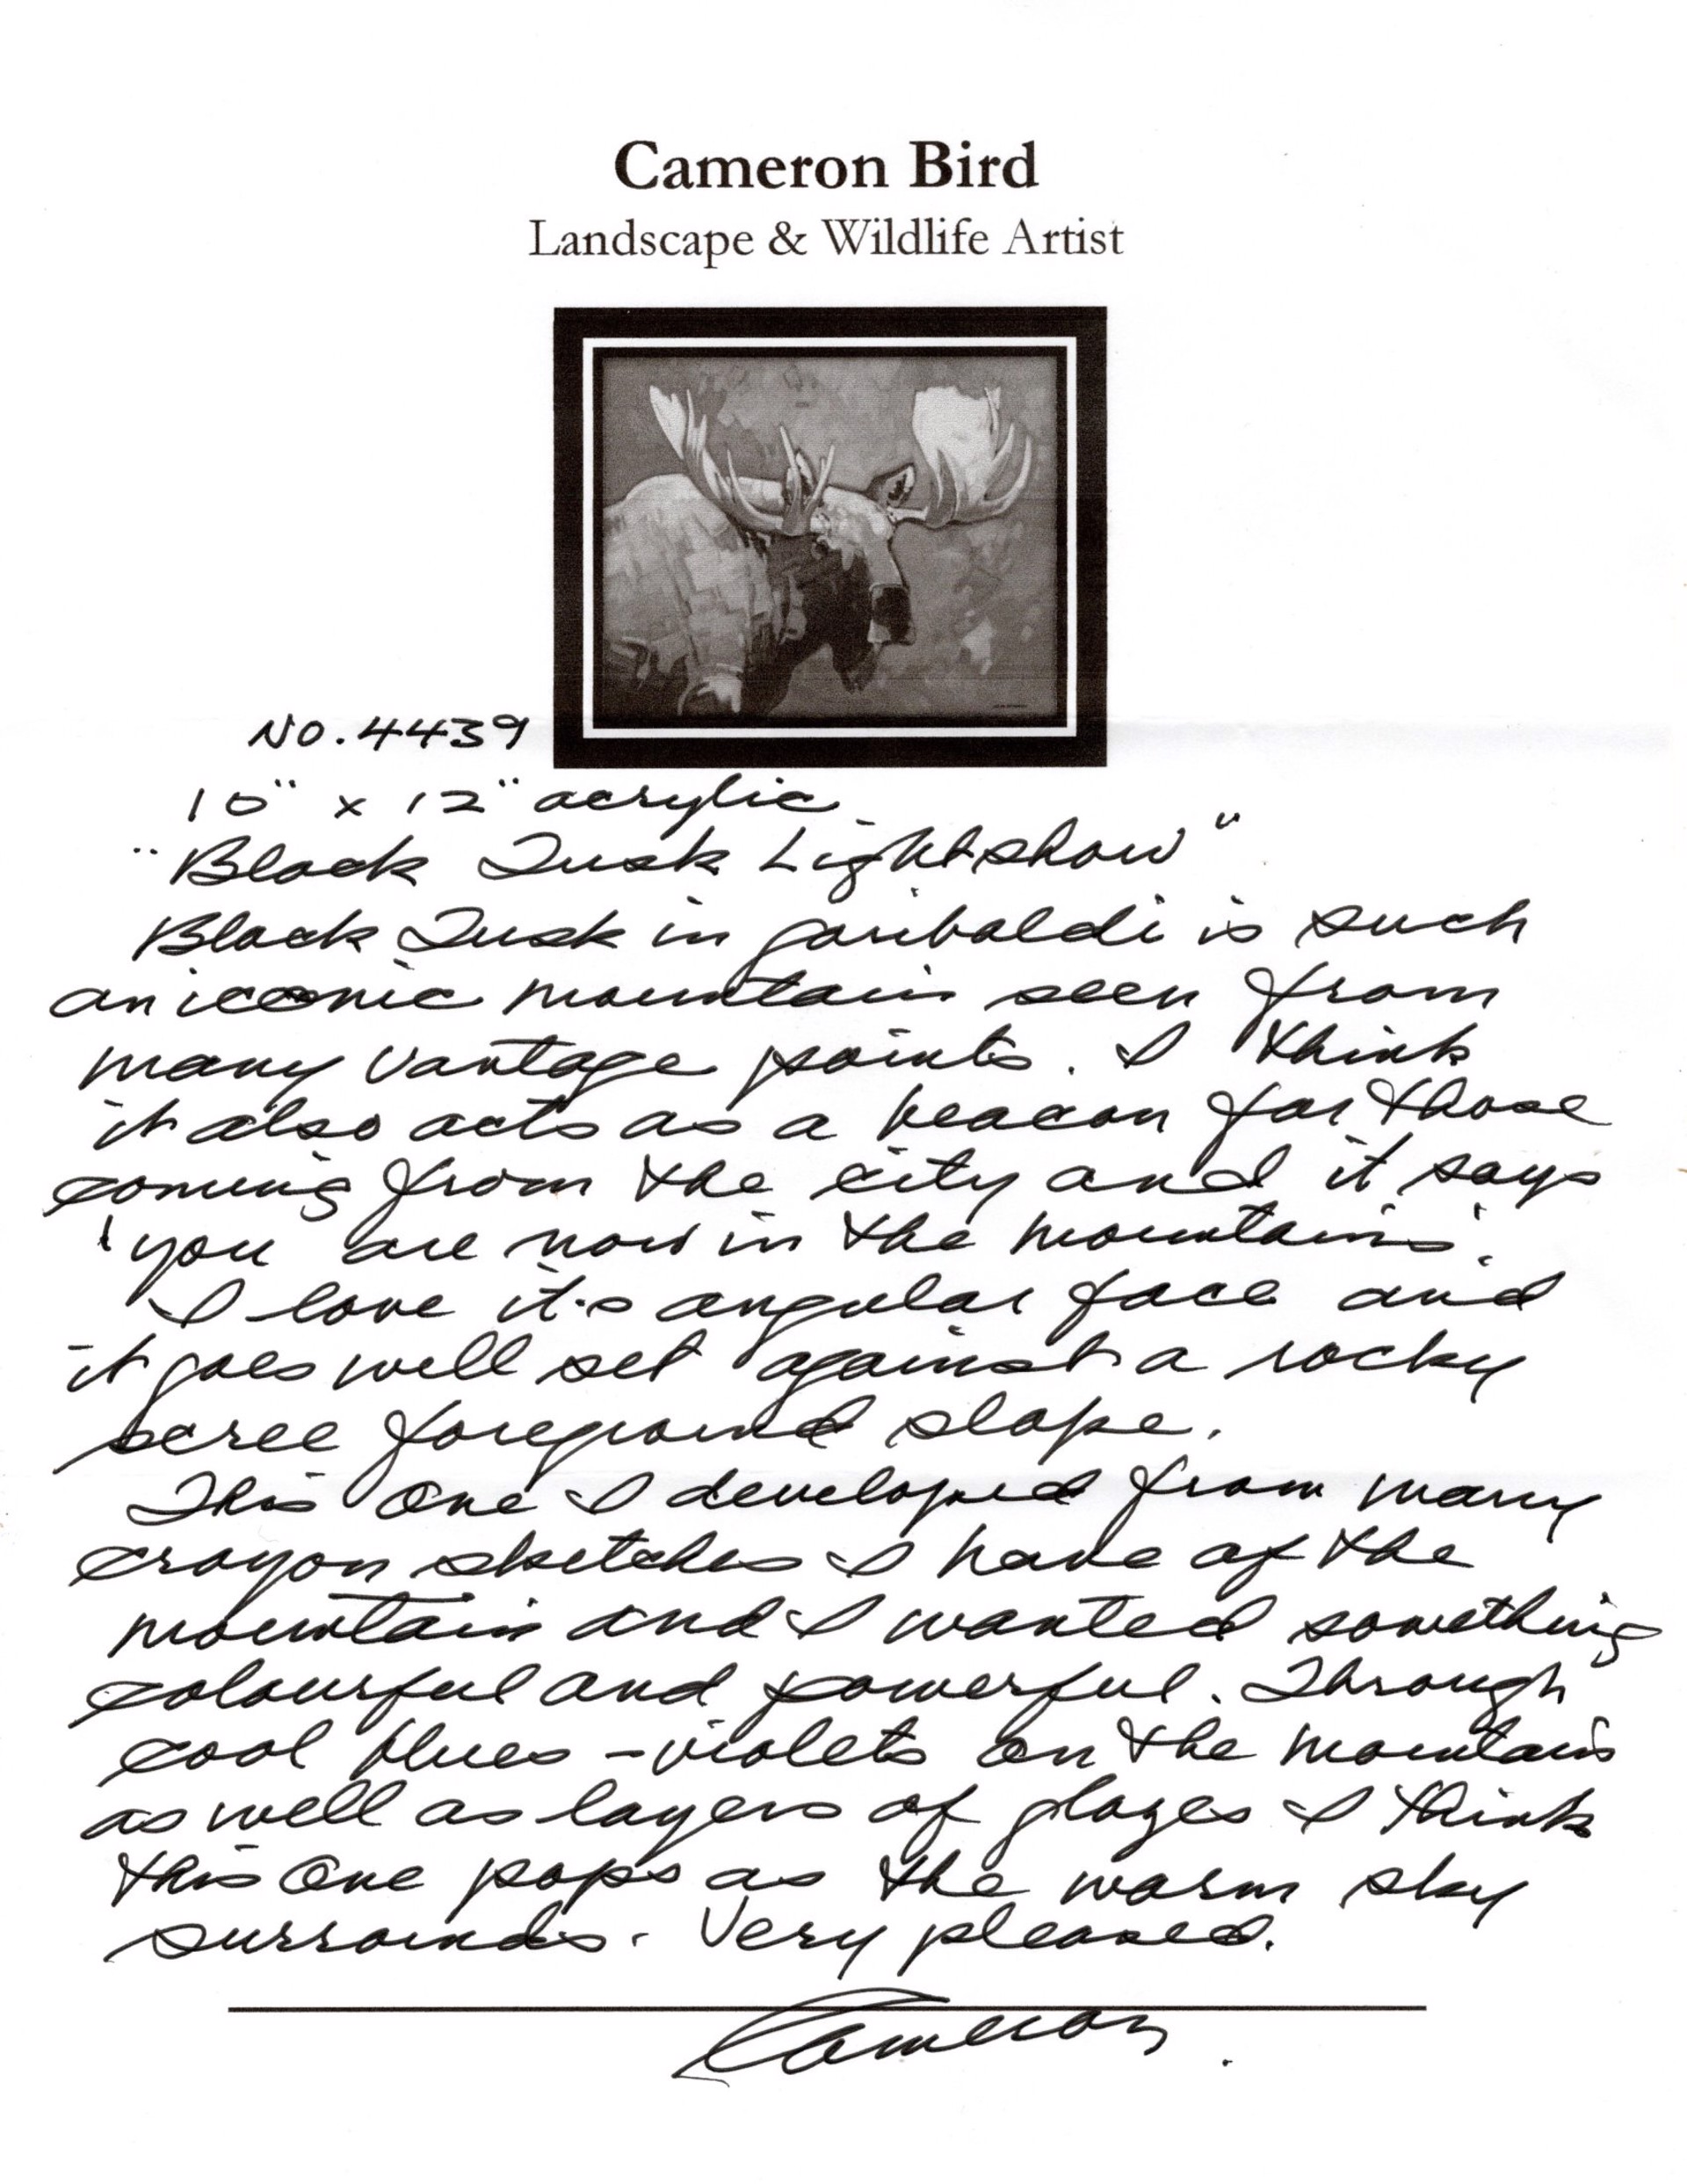 Cameron Bird
Landscape & Wildlife Artist
No. 4439
10" x 12" acrylic
"Black Tusk Lightshow"
Black Tusk in garibaldi is such
an iconic mountain seen from
many vantage points. I think
it also acts as a beacon for those
coming from the city and it says
'you are now in the mountains'.
I love it's angular face and
it goes well set against a rocky
scree foreground slope.
This one I developed from many
crayon sketches I have of the
mountain and I wanted something
colourful and powerful. Through
cool blues - violets on the mountain
as well as layers of glazes I think
this one pops as the warm sky
surrounds. Very pleased.
Cameron.